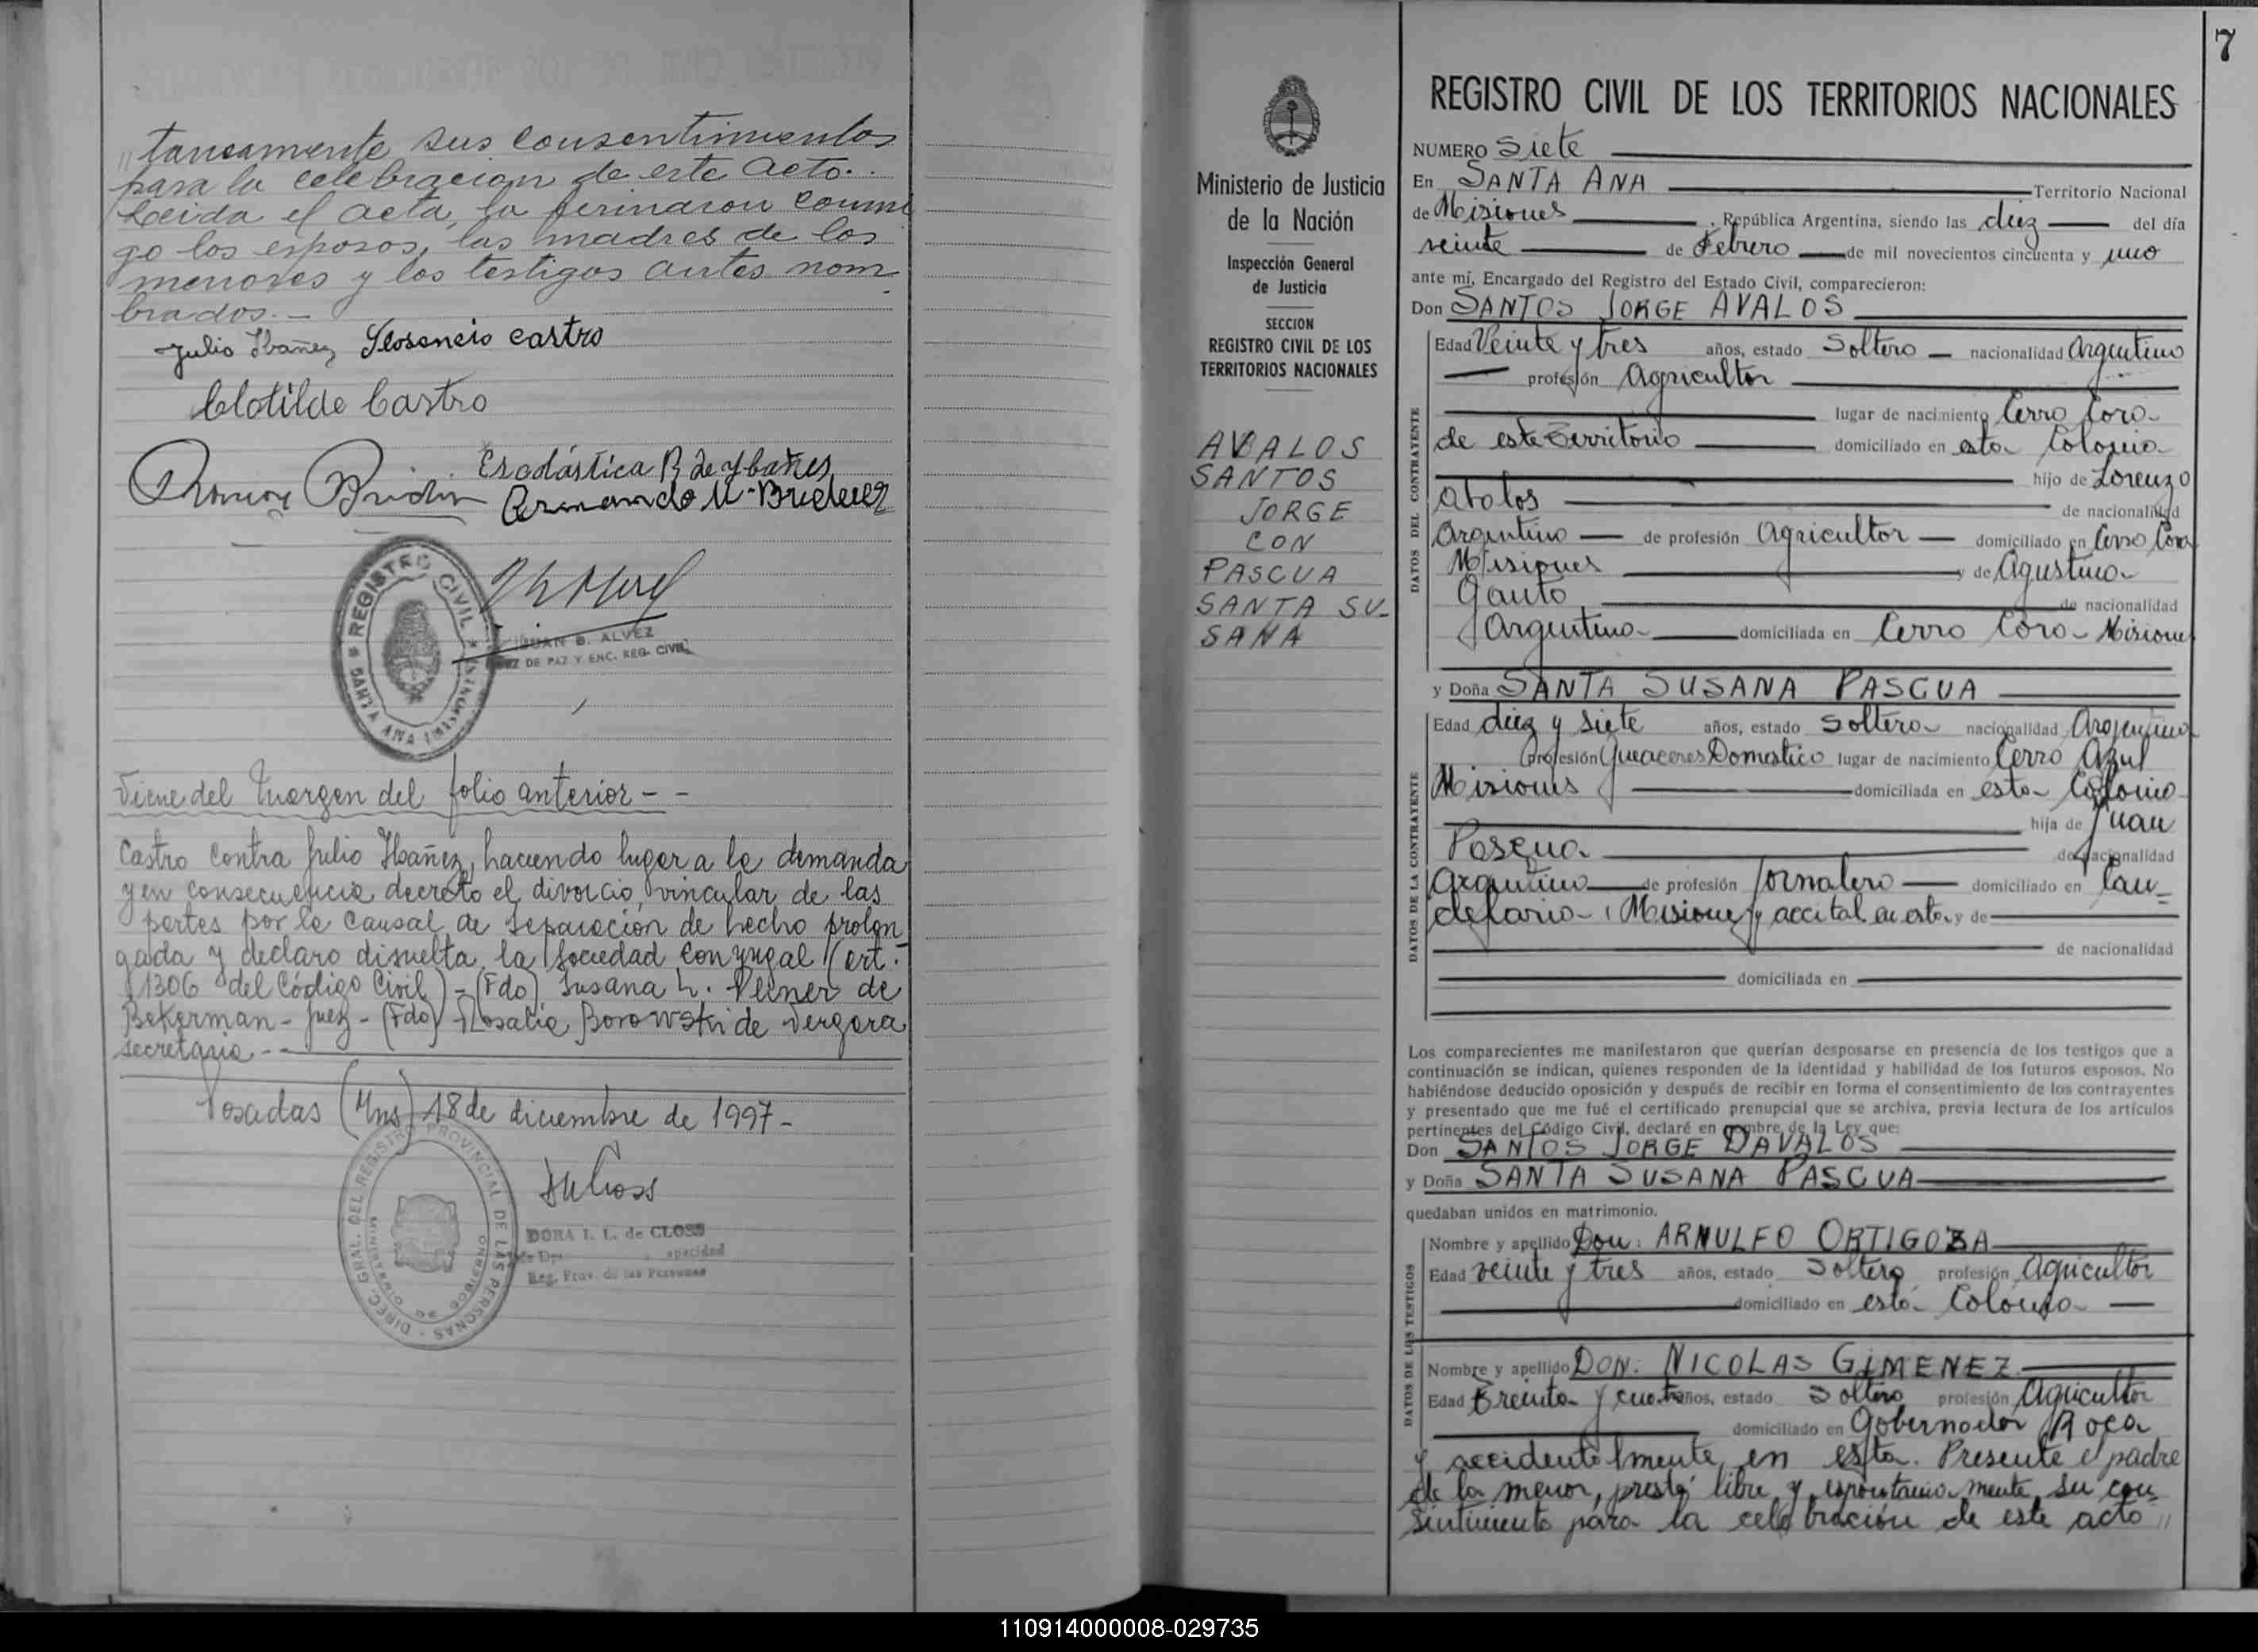 "taneamente sus consentimientos
para la celebracion de este acto.
Leida el acta, la firmaron conmi
go los esposos, las madres de los
menores y los testigos antes nom
brados.-
Julio Ibañez castro
Clotilde Castro
Escolástica R de Ybañes
Armando
REGISTRO CIVIL
SANTA ANA (MISIONES)
JUAN B. ALVEZ
JUEZ DE PAZ Y ENC. REG. CIVIL
Viene del margen del folio anterior - -
Castro contra Julio Ibañez, haciendo lugar a la demanda
y en consecuencia decreto el divorcio vincular de las
partes por la causal de separación de hecho prolon
gada y declaro disuelta la sociedad conyugal (art.
1306 del Código Civil) - (Fdo) Susana L. de
Bekerman - Juez - (Fdo) Rosalia Borowski de Vergara
secretaria - -
Posadas (Mns) 18 de diciembre de 1997 -
DIREC. GRAL. DEL REGISTRO PROVINCIAL DE LAS PERSONAS
DORA I. L. de CLOSS
Reg. Prov. de las Personas
7
Ministerio de Justicia
de la Nación
Inspección General
de Justicia
SECCION
REGISTRO CIVIL DE LOS
TERRITORIOS NACIONALES
AVALOS
SANTOS
JORGE
CON
PASCUA
SANTA SU-
SANA
REGISTRO CIVIL DE LOS TERRITORIOS NACIONALES
NUMERO Siete
En SANTA ANA Territorio Nacional
de Misiones , República Argentina, siendo las diez del día
veinte de Febrero de mil novecientos cincuenta y uno
ante mí, Encargado del Registro del Estado Civil, comparecieron:
Don SANTOS JORGE AVALOS
DATOS DEL CONTRAYENTE
Edad Veinte y tres años, estado Soltero nacionalidad Argentino
profesión Agricultor
lugar de nacimiento Cerro Cora
de este Territorio domiciliado en esta Colonia
hijo de Lorenzo
Abalos de nacionalidad
Argentino de profesión Agricultor domiciliado en Cerro Cora
Misiones y de Agustina
Gauto de nacionalidad
Argentina domiciliada en Cerro Cora - Misiones
y Doña SANTA SUSANA PASCUA
DATOS DE LA CONTRAYENTE
Edad diez y siete años, estado Soltera nacionalidad Argentina
profesión Queaceres Domestico lugar de nacimiento Cerro Azul
Misiones domiciliada en esta Colonia
hija de Juan
Pascua de nacionalidad
Argentino de profesión Jornalero domiciliado en Can=
delaria - (Misiones) y accital en esta y de
de nacionalidad
domiciliada en
Los comparecientes me manifestaron que querían desposarse en presencia de los testigos que a
continuación se indican, quienes responden de la identidad y habilidad de los futuros esposos. No
habiéndose deducido oposición y después de recibir en forma el consentimiento de los contrayentes
y presentado que me fué el certificado prenupcial que se archiva, previa lectura de los artículos
pertinentes del Código Civil, declaré en nombre de la Ley que:
Don SANTOS JORGE DAVALOS
y Doña SANTA SUSANA PASCUA
quedaban unidos en matrimonio.
DATOS DE LOS TESTIGOS
Nombre y apellido Don: ARNULFO ORTIGOZA
Edad veinte y tres años, estado Soltero profesión Agricultor
domiciliado en esta Colonia
Nombre y apellido DON: NICOLAS GIMENEZ
Edad Treinta y cuatro años, estado Soltero profesión Agricultor
domiciliado en Gobernador Roca
y accidentalmente en esta. Presente el padre
de la menor, prestó libre y espontaneamente su con=
sentimiento para la celebración de este acto "
110914000008-029735